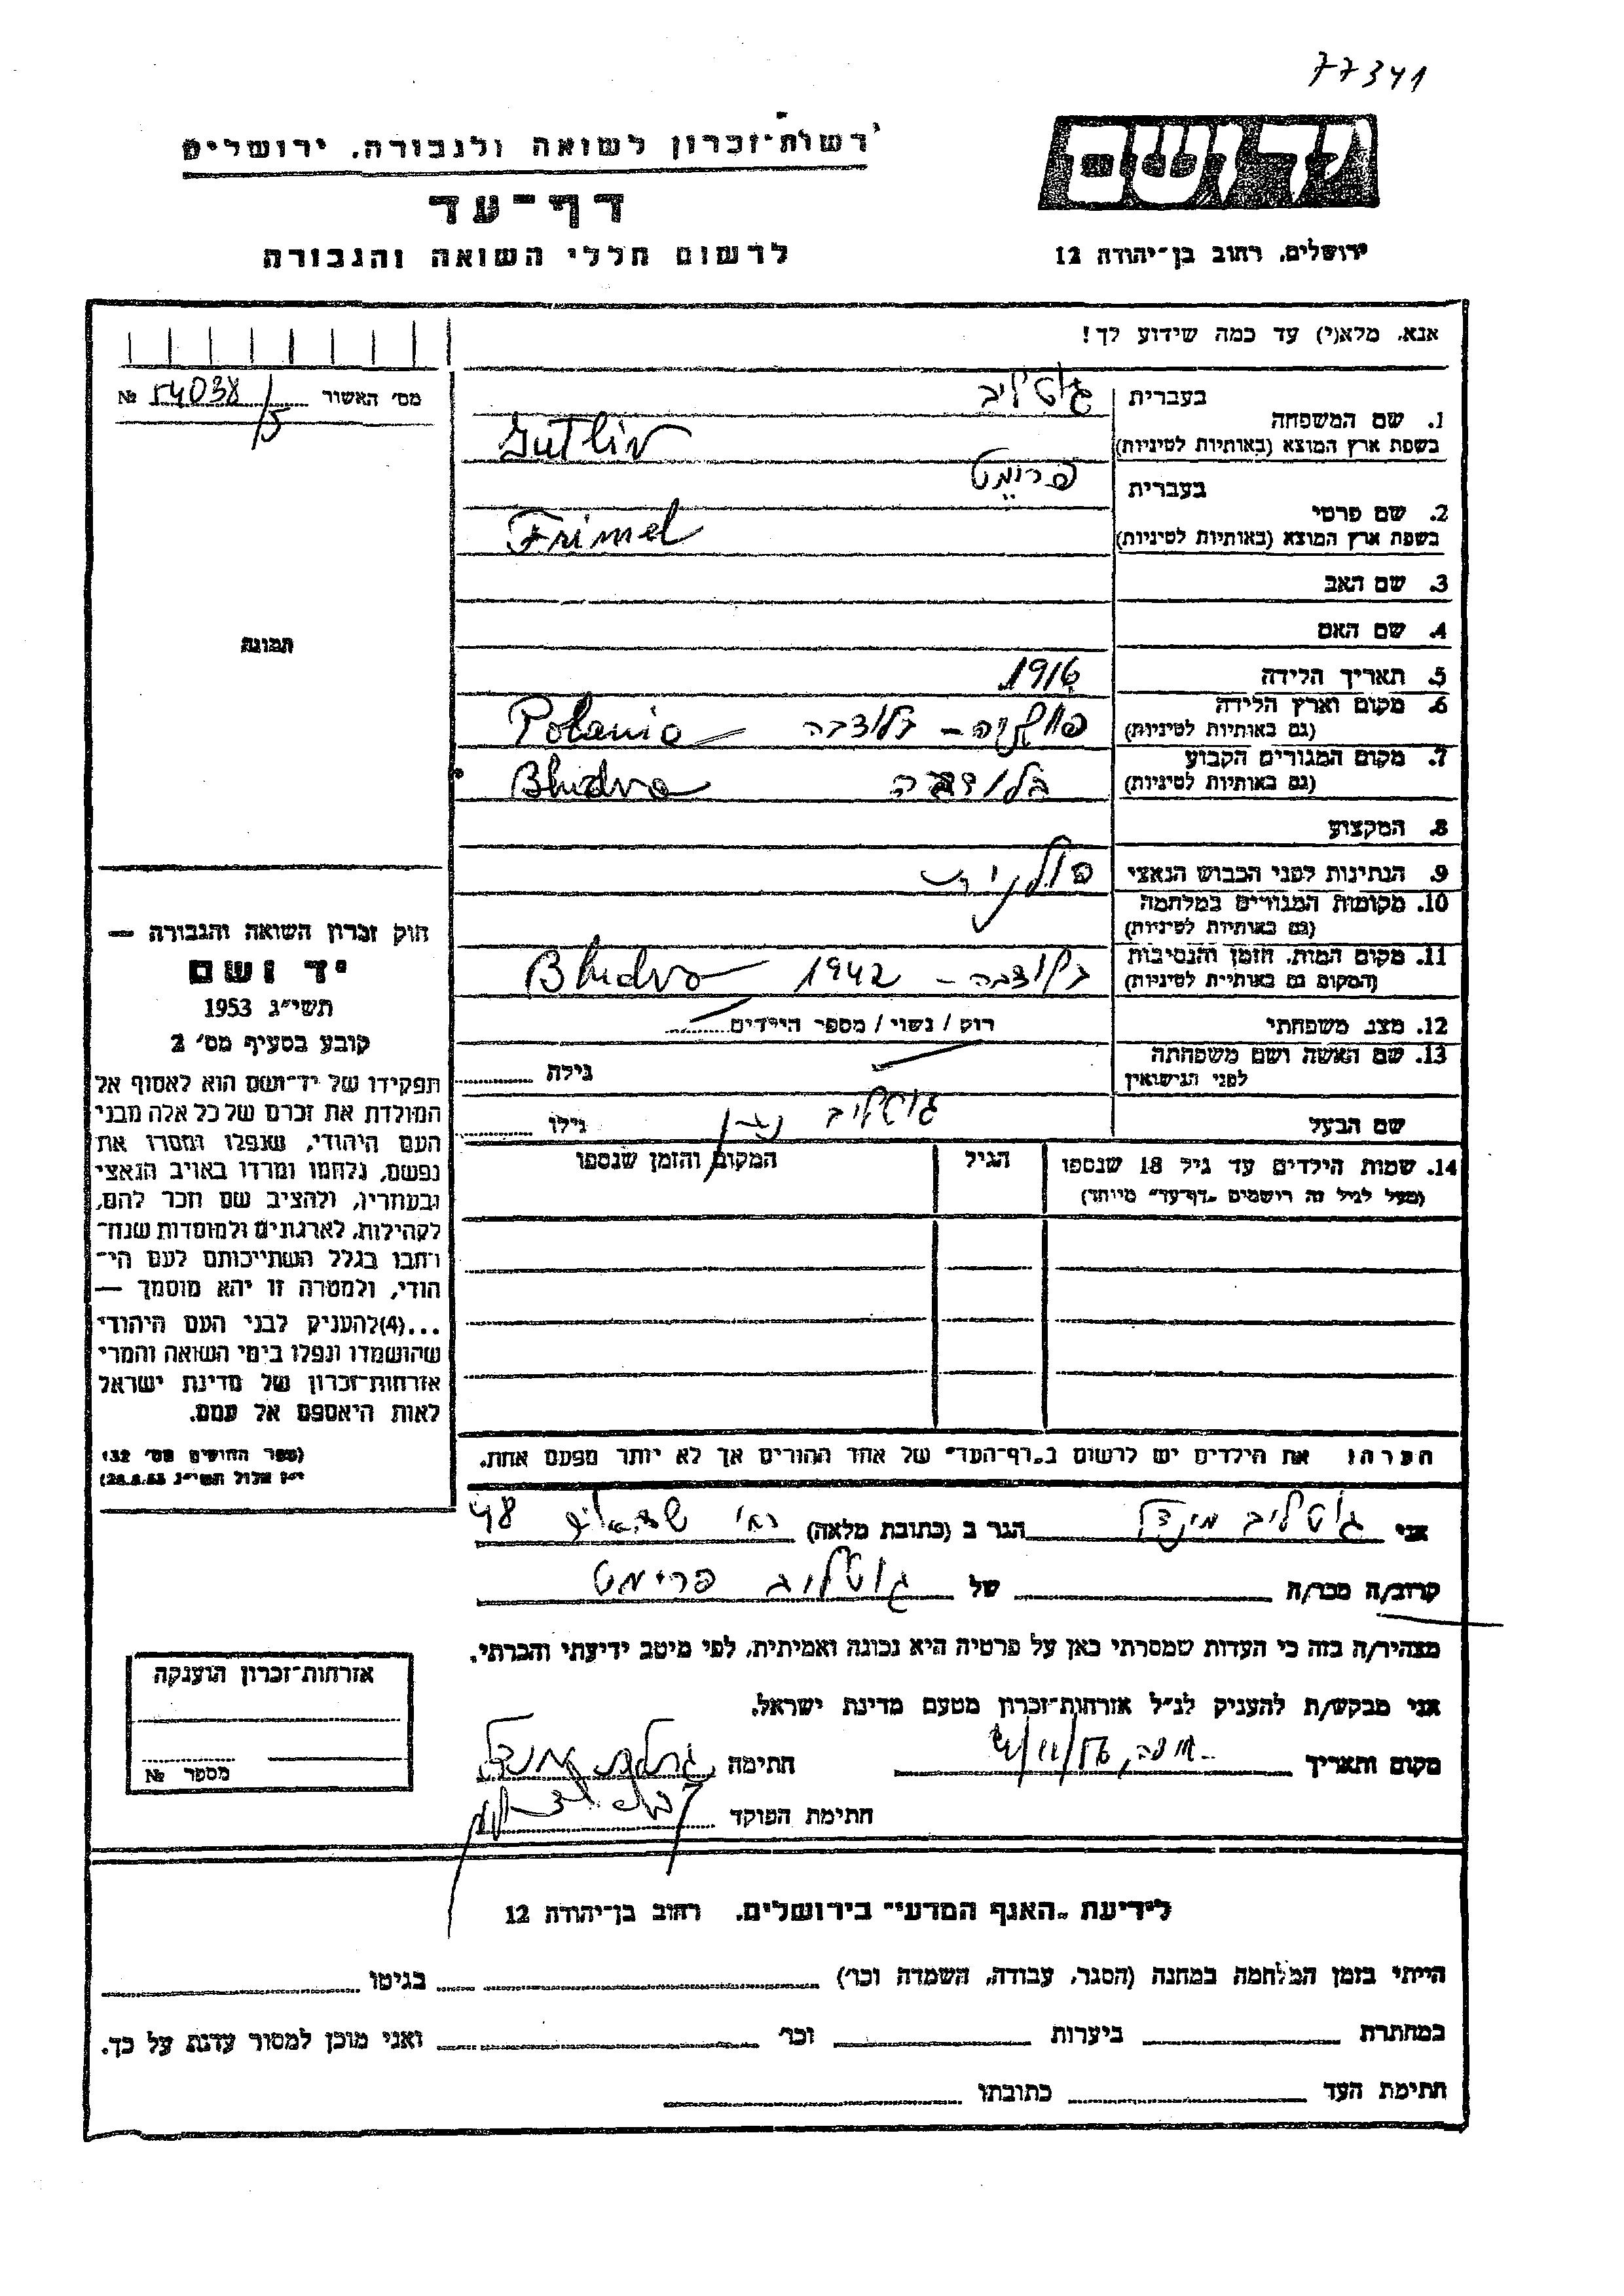 77341
רשות־זכרון לשואה ולגבורה, ירושלים
יד ושם
דף־עד
לרשום חללי השואה והגבורה
ירושלים, רחוב בן־יהודה 12
אנא, מלא(י) עד כמה שידוע לך!
מס׳ האשור 54038/5 №
1. שם המשפחה
בעברית גוטליב
בשפת ארץ המוצא (באותיות לטיניות) Gutliv
2. שם פרטי
בעברית פרומט
בשפת ארץ המוצא (באותיות לטיניות) Frimel
3. שם האב
4. שם האם
תמונה
5. תאריך הלידה 1916
6. מקום וארץ הלידה
(גם באותיות לטיניות) פולניה – בלודבה Polania
7. מקום המגורים הקבוע
(גם באותיות לטיניות) בלודבה Bludva
8. המקצוע
9. הנתינות לפני הכבוש הנאצי פולנית
10. מקומות המגורים במלחמה
(גם באותיות לטיניות)
11. מקום המות, הזמן והנסיבות
(המקום גם באותיות לטיניות) בלודבה – 1942 Bludva
12. מצב משפחתי רווק / נשוי / מספר הילדים
13. שם האשה ושם משפחתה
לפני הנישואין
גילה
שם הבעל גוטליב
גילו
14. שמות הילדים עד גיל 18 שנספו
(מעל לגיל זה רושמים „דף־עד״ מיוחד)
הגיל
המקום והזמן שנספו
חוק זכרון השואה והגבורה —
יד ושם
תשי״ג 1953
קובע בסעיף מס׳ 2
תפקידו של יד־ושם הוא לאסוף אל
המולדת את זכרם של כל אלה מבני
העם היהודי, שנפלו ומסרו את
נפשם, נלחמו ומרדו באויב הנאצי
ובעוזריו, ולהציב שם וזכר להם,
לקהילות, לארגונים ולמוסדות שנח־
רבו בגלל השתייכותם לעם הי־
הודי, ולמטרה זו יהא מוסמך —
...(4)להעניק לבני העם היהודי
שהושמדו ונפלו בימי השואה והמרי
אזרחות־זכרון של מדינת ישראל
לאות היאספם אל עמם.
(ספר החוקים מס׳ 132
י״ז אלול תשי״ג 28.8.53)
הערה: את הילדים יש לרשום ב„דף־העד״ של אחד ההורים אך לא יותר מפעם אחת.
אני גוטליב מינדל הגר ב (כתובת מלאה) 48
קרוב/ה מכר/ה של גוטליב פרימט
מצהיר/ה בזה כי העדות שמסרתי כאן על פרטיה היא נכונה ואמיתית, לפי מיטב ידיעתי והכרתי.
אני מבקש/ת להעניק לנ״ל אזרחות־זכרון מטעם מדינת ישראל.
מקום ותאריך
חתימה
חתימת הפוקד
אזרחות־זכרון הוענקה
מספר №
לידיעת „האגף המדעי״ בירושלים, רחוב בן־יהודה 12
הייתי בזמן המלחמה במחנה (הסגר, עבודה, השמדה וכו׳) בגיטו
במחתרת ביערות וכו׳ ואני מוכן למסור עדות על כך.
חתימת העד כתובתו